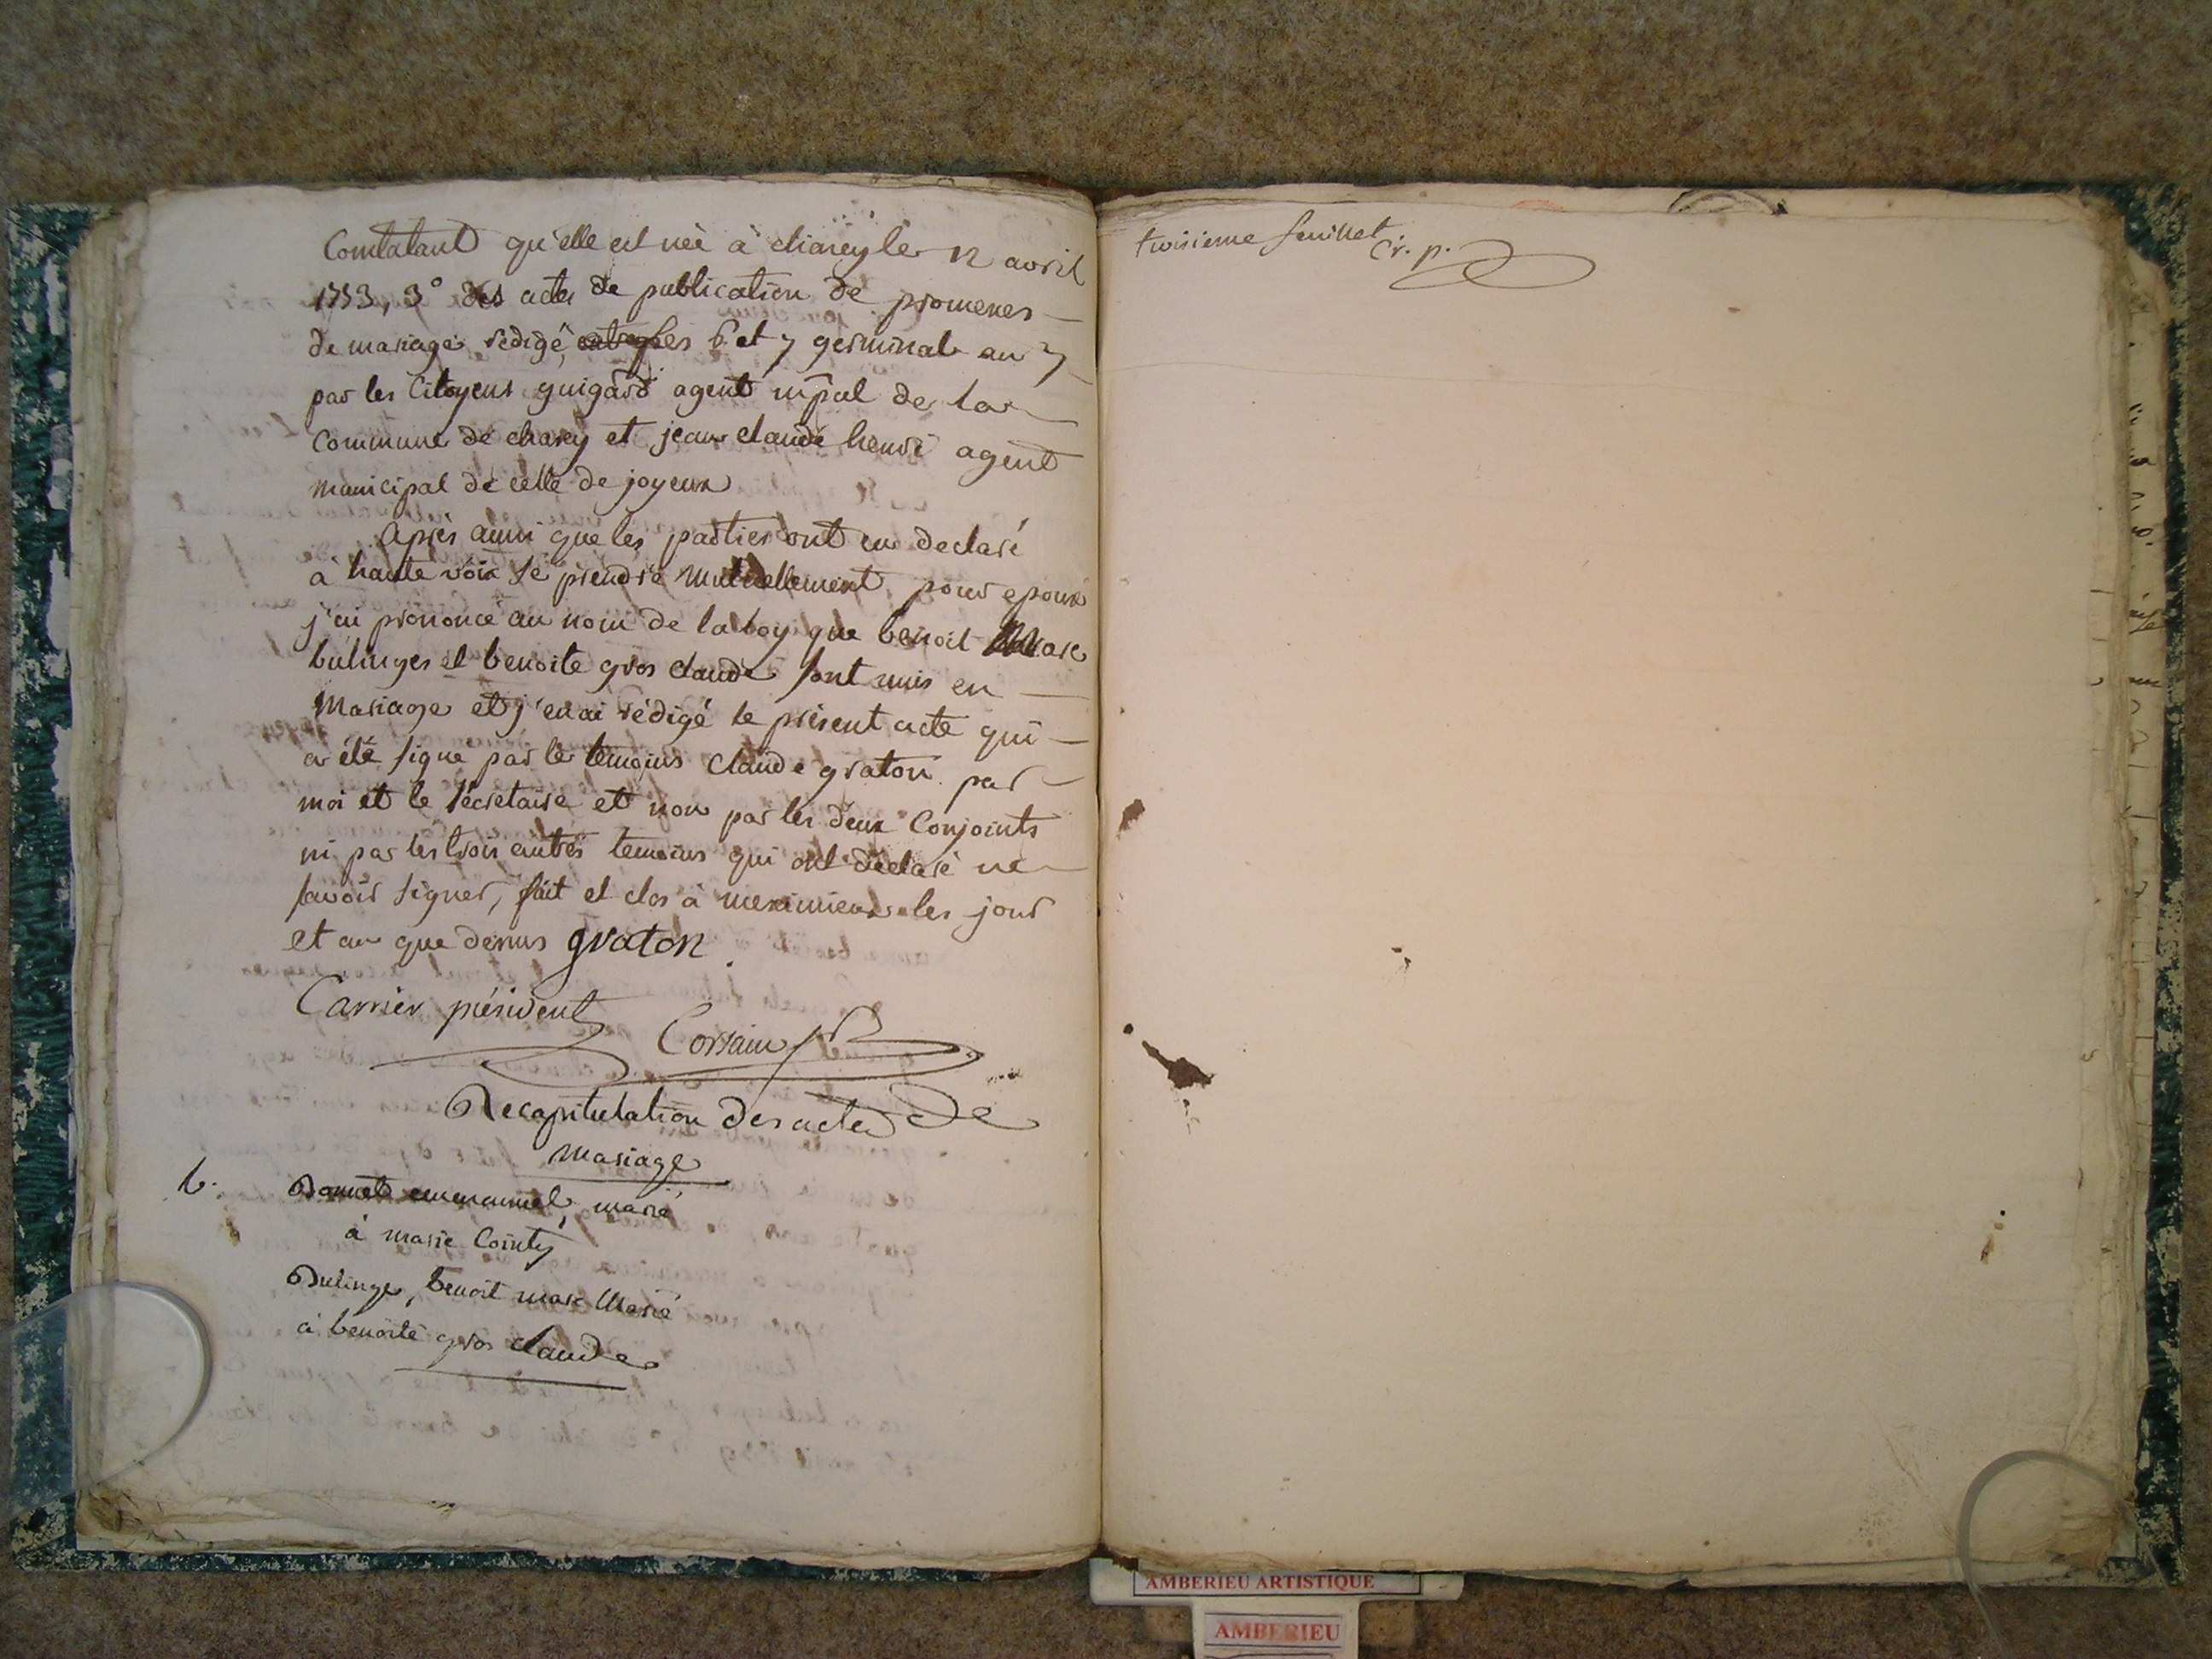 Constatant qu'elle est née à charey le 12 avril
1753, 3° des actes de publication de promesses
de mariage rédigé les 6 et 7 germinal an 7
par les Citoyens guigard agent mpal de la
Commune de charey et jean claude henri agent
municipal de celle de joyeux
Après aussi que les parties ont eu declaré
à haute voix se prendre mutuellement pour epoux
j'ai prononcé au nom de la loy que benoit Marc
bulinges et benoite gros claude sont unis en
Mariage et j'en ai rédigé le présent acte qui
a été signé par le temoins Claude graton par
moi et le sécretaire et non par les deux Conjoints
ni par les trois autres temoins qui ont déclaré ne
savoir signer, fait et clos à meximieux les jour
et an que dessus graton.
Carrier président
Corsain
Recapitulation des actes de
mariage
emmanuel, marié
à marie Cointy
Bulinge, benoit marc Marié
à benoite gros claude
troisieme feuillet.
Cr. p.
AMBERIEU ARTISTIQUE
AMBERIEU